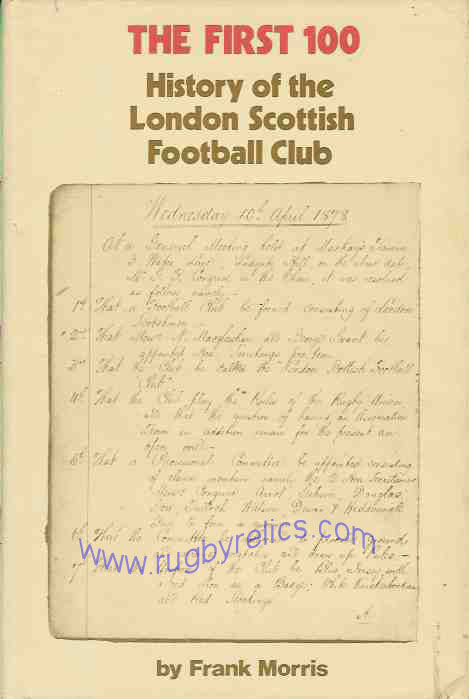 THE FIRST 100
History of the
London Scottish
Football Club
Wednesday 10th April 1878
At a General Meeting held at
on the above date
in the Chair, it was resolved
as follows namely
1st That a Football Club be formed consisting of London
Scotsmen
2nd That Messrs N. Maclachlan and George Grant be
appointed Hon.
3rd That the Club be called the London Scottish Football
Club
4th That the Club play the Rules of the Rugby Union
and that the question of having an Association
Team in addition remain for the present an
open one
5th That a Provisional Committee be appointed consisting
of eleven members namely the 2 Hon Secretaries
Messrs Douglas
6th That the Committee
and draw up Rules
www.rugbyrelics.com
7 of the Club be Blue Jersey with
a red Lion as a Badge, Knickerbockers
and Red Stockings
by Frank Morris